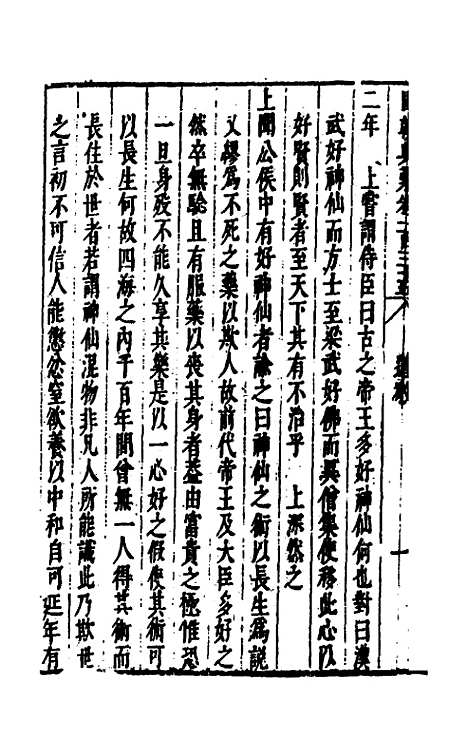 二年　上嘗謂侍臣曰古之帝王多好神仙何也對曰漢
武好神仙而方士至梁武好佛而異僧集使移此心以
好賢則賢者至天下其有不治乎　上深然之
上聞公侯中有好神仙者諭之曰神仙之術以長生為説
又繆為不死之藥以欺人故前代帝王及大臣多好之
然卒無驗且有服藥以喪其身者葢由富貴之極惟恐
一旦身殁不能久享其樂是以一心好之假使其術可
以長生何故四海之内千百年間曾無一人得其術而
長住於世者若謂神仙混物非凡人所能識此乃欺世
之言初不可信人能懲忿窒欲養以中和自可延年有